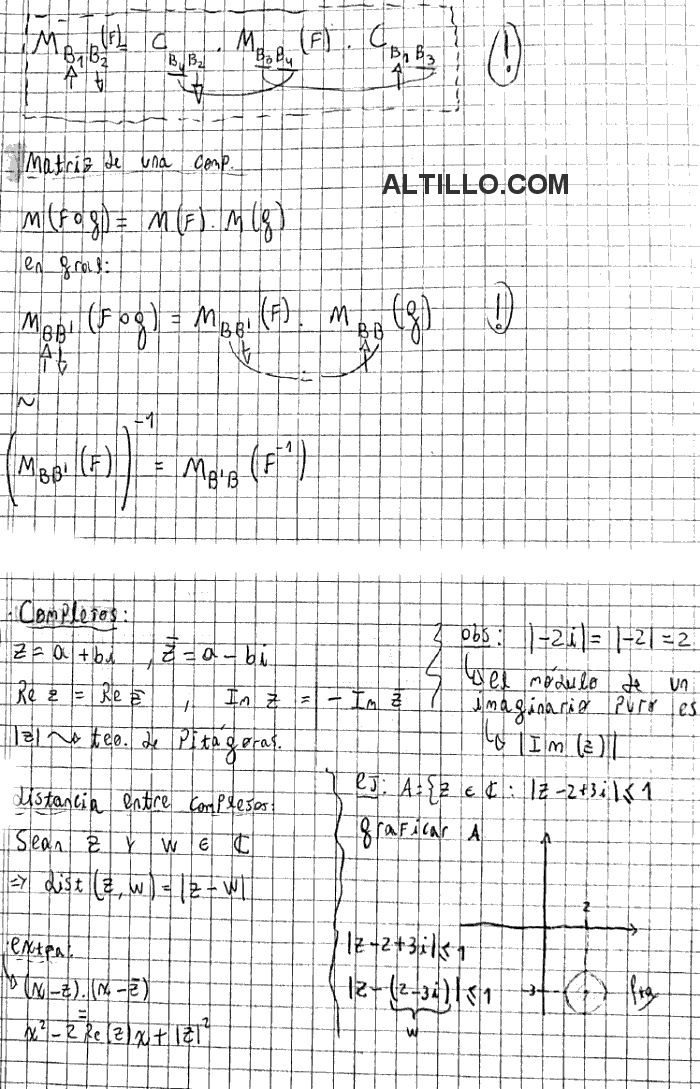 M_{B₁B₂}(F) = C_{B₄B₂} . M_{B₃B₄}(F) . C_{B₁B₃} !
Matriz de una comp.
ALTILLO.COM
M(F∘g) = M(F) . M(g)
en gral:
M_{BB'}(F∘g) = M_{BB'}(F) . M_{BB}(g) !
~
(M_{BB'}(F))^{-1} = M_{B'B}(F^{-1})
Complejos:
z = a + bi , z̄ = a - bi
Re z = Re z̄ , Im z = - Im z̄
|z| ~> teo. de Pitágoras.
obs: |-2i| = |-2| = 2
↳ el módulo de un
imaginario puro es
↳ |Im(z)|
distancia entre complejos:
Sean z y w ∈ ℂ
=> dist(z, w) = |z - w|
extra:
↳ (x-z).(x-z̄)
=
x² - 2 Re(z) x + |z|²
ej: A={z ∈ ℂ : |z-2+3i| ≤ 1
graficar A
|z-2+3i| ≤ 1
|z-(2-3i)| ≤ 1
w
2
3
rta